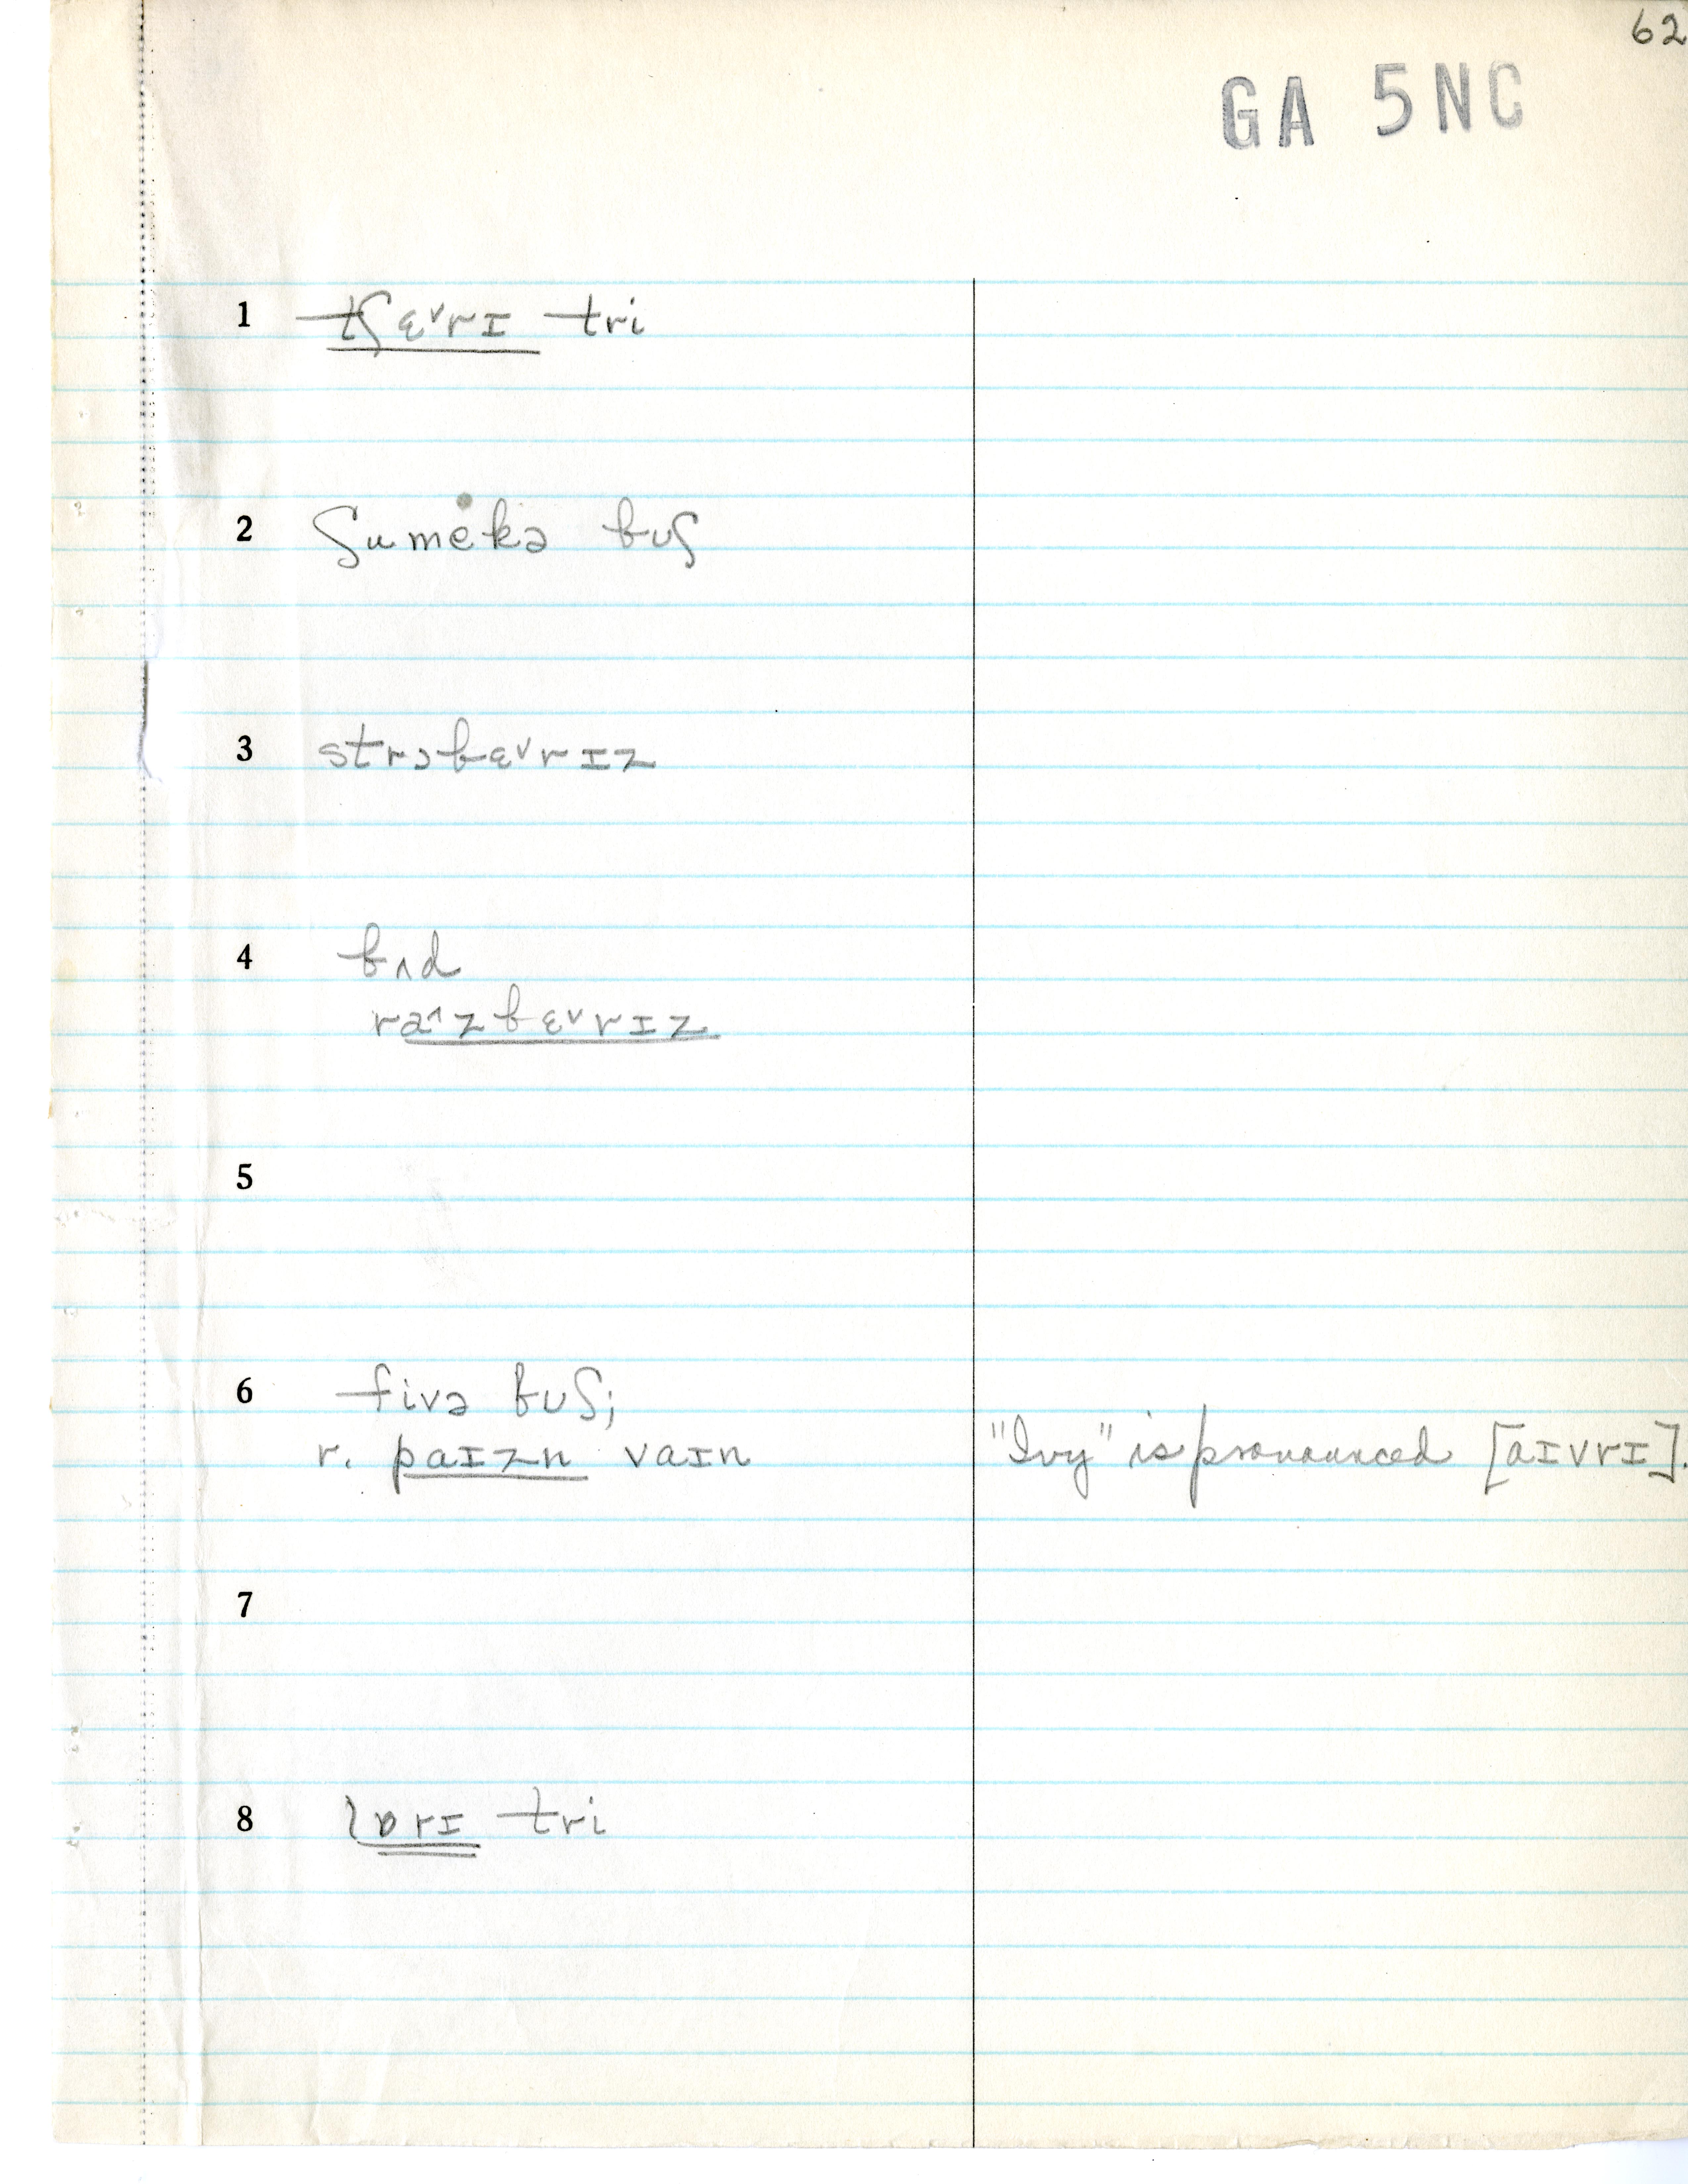 62
GA 5NC
1 tʃɛ˅rɪ tri
2 ʃumėkə buʃ
3 strɔbɛ˅rɪz
4 bʌd
ra˄zbɛ˅rɪz
5
6 fivə buʃ;
r. paɪzn vaɪn "Ivy" is pronounced [aɪvrɪ].
7
8 lɒrɪ tri